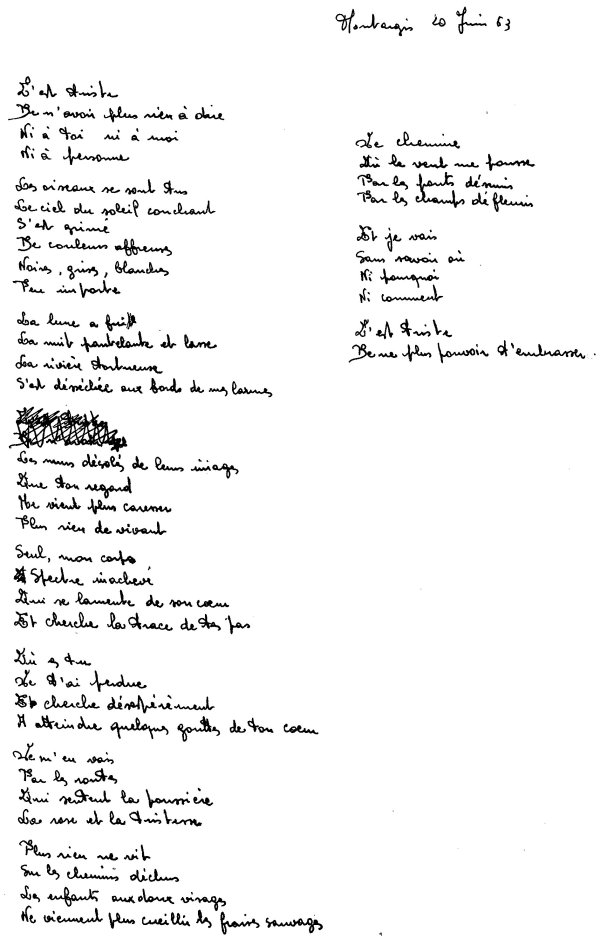 Montargis 20 Juin 63
C'est triste
De n'avoir plus rien à dire
Ni à toi ni à moi
Ni à personne
Les oiseaux se sont tus
Le ciel du soleil couchant
S'est grimé
De couleurs affreuses
Noires, grises, blanches
Peu importe
La lune a fuit
La nuit pantelante et lasse
La rivière tortueuse
S'est désséchée aux bords de mes larmes
Les murs désolés de leurs images
Que ton regard
Ne vient plus caresser
Plus rien de vivant
Seul, mon corps
Spectre inachevé
Qui se lamente de son cœur
Et cherche la trace de tes pas
Où es tu
Je t'ai perdue
Et cherche désespérément
A atteindre quelques gouttes de ton cœur
Je m'en vais
Par les routes
Qui sentent la poussière
La rose et la tristesse
Plus rien ne vit
Sur les chemins déchus
Les enfants aux doux visages
Ne viennent plus cueillir les fraises sauvages
Je chemine
Où le vent me pousse
Par les ponts désunis
Par les champs défleuris
Et je vais
Sans savoir où
Ni pourquoi
Ni comment
C'est triste
De ne plus pouvoir t'embrasser.